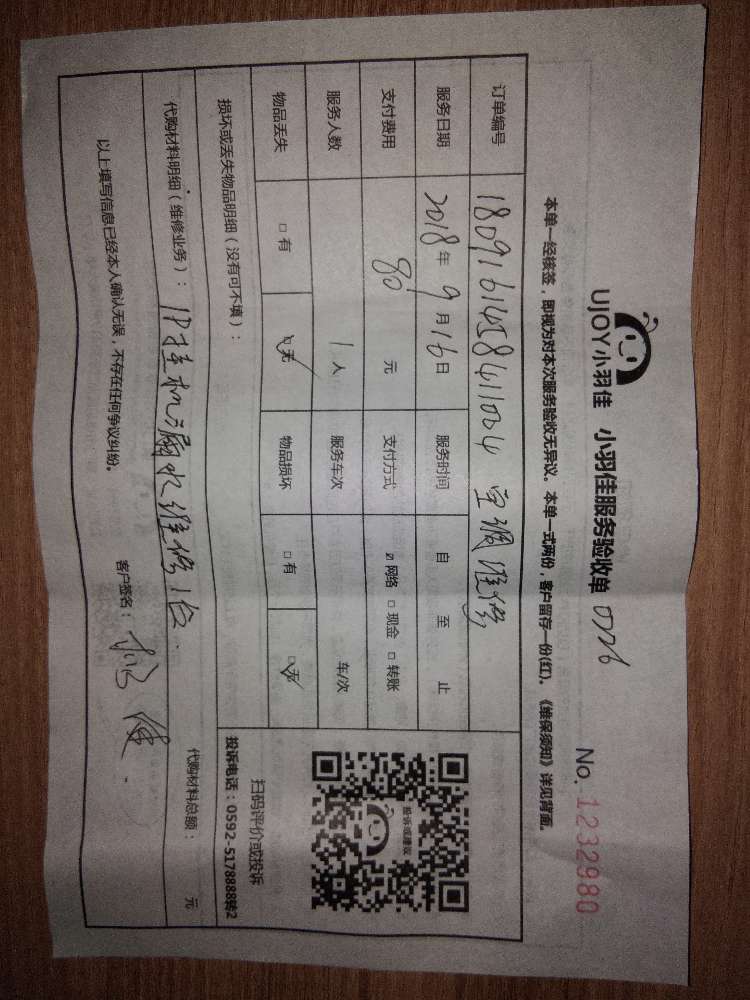 UJOY小羽佳 小羽佳服务验收单 0726 No. 1232980
本单一经核签，即视为对本次服务验收无异议。本单一式两份，客户留存一份(红)。《维保须知》详见背面。
订单编号 1809161458411004 空调维修
服务日期 2018年9月16日 服务时间 自 至 止
支付费用 80 元 支付方式 ☑网络 □现金 □转账
服务人数 1人 服务车次 车/次
物品丢失 □有 ☑无 物品损坏 □有 ☑无
投诉或建议
扫码评价或投诉
投诉电话：0592-5178888转2
损坏或丢失物品明细（没有可不填）：
代购材料明细（维修业务）：1P挂机漏水维修1台. 代购材料总额： 元
以上填写信息已经本人确认无误，不存在任何争议纠纷。 客户签名：